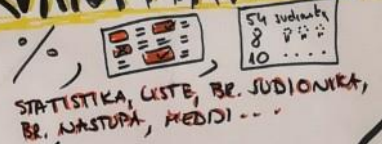 %
54 sudionika
8
10 ....
STATISTIKA, LISTE, BR. SUDIONIKA,
BR. NASTUPA, MEDIJI...